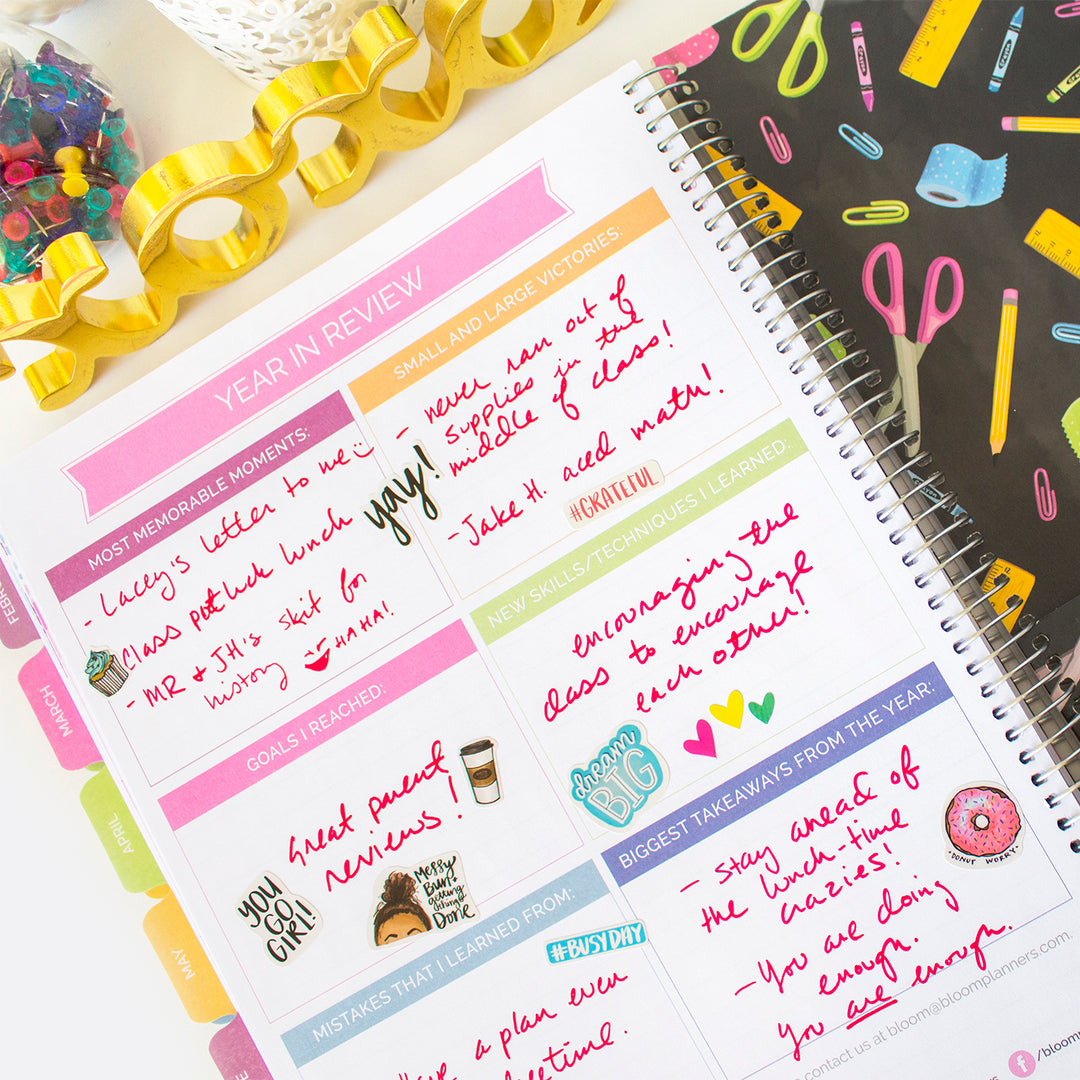 YEAR IN REVIEW
MOST MEMORABLE MOMENTS:
- Lacey's letter to me
Class potluck lunch
- MR & JH's skit for
history HAHA!
SMALL AND LARGE VICTORIES:
- never ran out of
supplies in the
middle of class!
- Jake H. aced math!
yay!
#GRATEFUL
GOALS I REACHED:
Great parent
reviews!
YOU
GO
GIRL!
MESSY
Bun +
getting
things
Done
NEW SKILLS/TECHNIQUES I LEARNED:
encouraging the
class to encourage
each other!
dream
BIG
MISTAKES THAT I LEARNED FROM:
#BUSYDAY
a plan even
BIGGEST TAKEAWAYS FROM THE YEAR:
- Stay ahead of
the lunch-time
crazies!
- You are doing
enough.
You are enough.
• DONUT WORRY •
contact us at bloom@bloomplanners.com.
f /bloomp
FEBR
MARCH
APRIL
MAY
NE